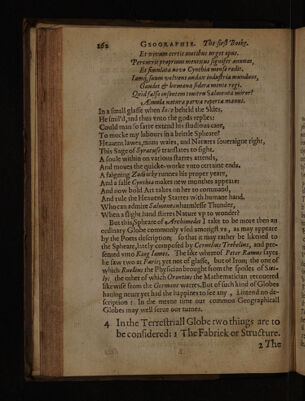 262 GEOGRAPHIE. The first Booke.
Et vivum certis motibus urget opus.
Percurrit proprium mentitus signifer annum,
Et simulata novo Cynthia mense redit.
Iamque suum volvens audax industria mundum,
Gaudet & humana sidera mente regit.
Quid falso insontem tonitru Salmonea miror?
Æmula naturæ parva reperta manus.
In a small glasse when Iove beheld the Skies,
He smil'd, and thus unto the gods replies:
Could man so farre extend his studious care,
To mocke my labours in a brittle Spheare?
Heavens lawes, mans waies, and Natures soveraigne right,
This Sage of Syracuse translates to sight.
A soule within on various starres attends,
And moves the quicke-worke unto certaine ends.
A faigning Zodiacke runnes his proper yeare,
And a false Cynthia makes new monthes appeare:
And now bold Art takes on her to command,
And rule the Heavenly Starres with humane hand.
Who can admire Salmoneus harmlesse Thunder,
When a slight hand stirres Nature up to wonder?
But this Spheare of Archimedes I take to be more then an
ordinary Globe commonly used amongst us, as may appeare
by the Poets description; so that it may rather be likened to
the Spheare, lately composed by Cornelius Trebelius, and pre-
sented unto King Iames. The like whereof Peter Ramus sayes
he saw two at Paris; yet not of glasse, but of Iron: the one of
which Ruellius the Physician brought from the spoiles of Sici-
ly: the other of which Orontius the Mathematician recovered
likewise from the German warres. But of such kind of Globes
having never yet had the happines to see any, I intend no de-
scription: In the meane time our common Geographicall
Globes may well serve our turnes.
4 In the Terrestriall Globe two things are to
be considered: 1 The Fabricke or Structure.
2 The